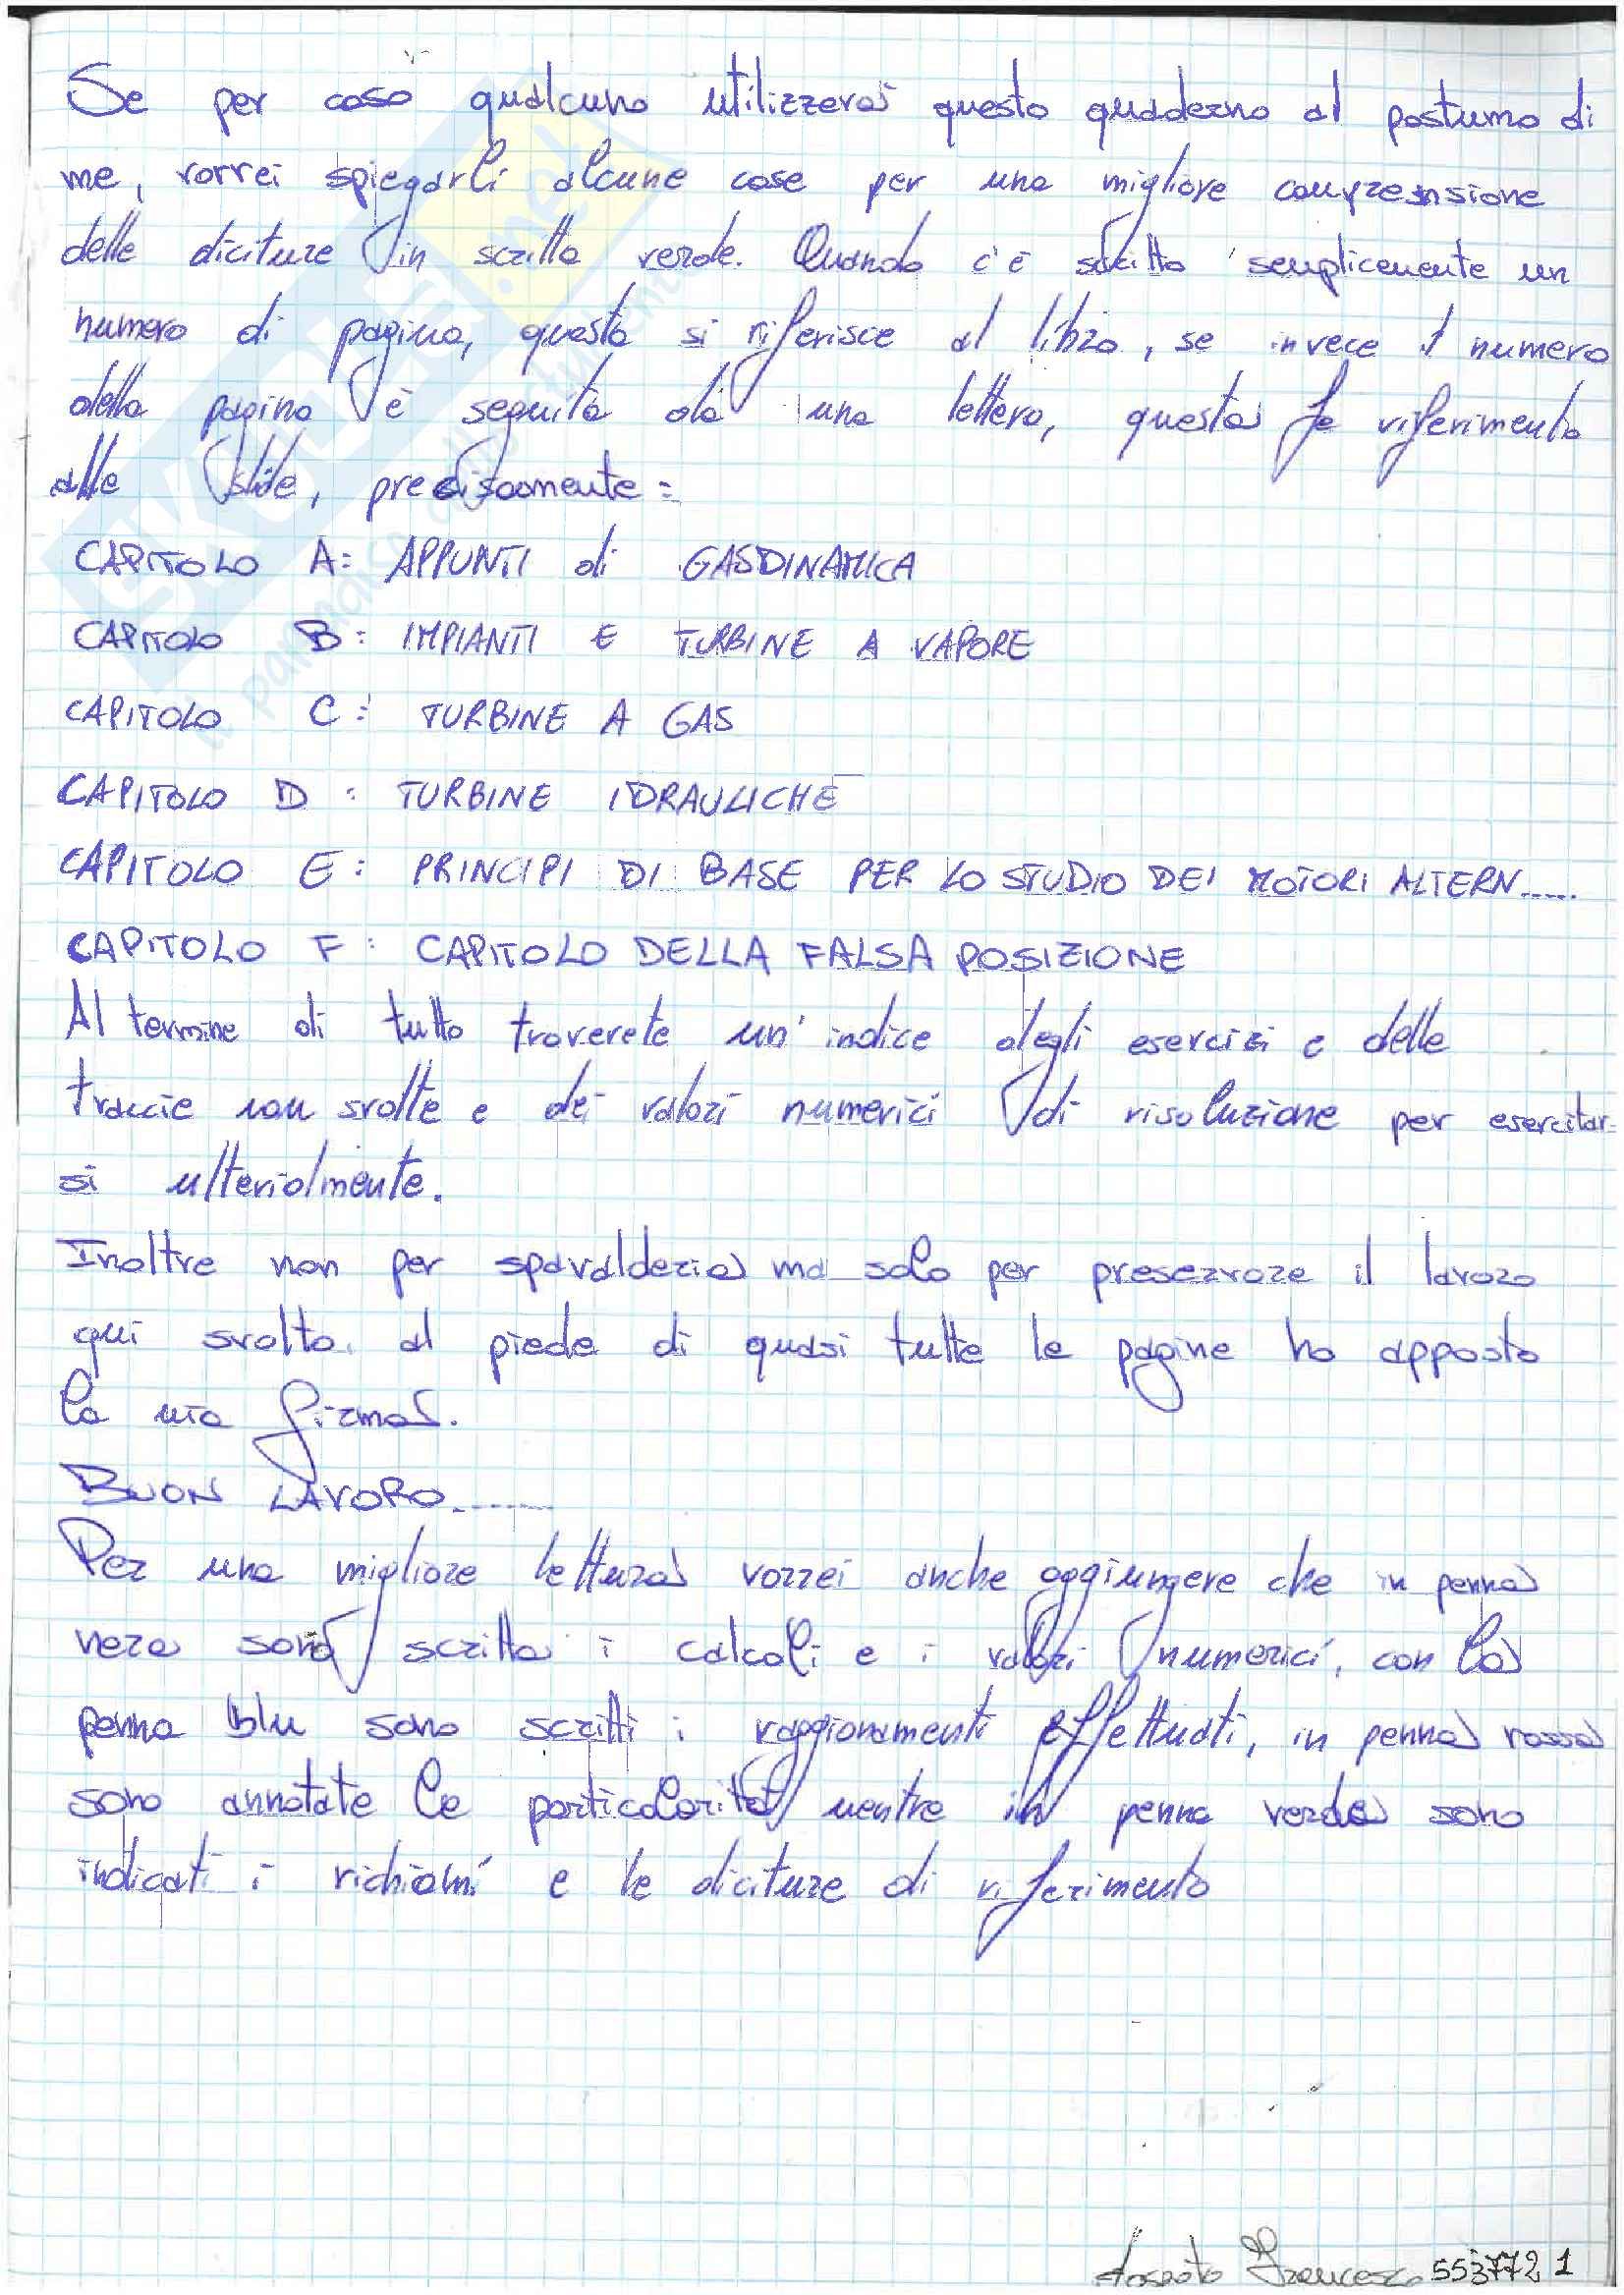 Se per caso qualcuno utilizzerà questo quaderno al postumo di
me, vorrei spiegarli alcune cose per una migliore comprensione
delle diciture in scritta verde. Quando c'è scritto semplicemente un
numero di pagina, questo si riferisce al libro, se invece il numero
della pagina è seguita da una lettera, questa fa riferimento
alle slide, precisamente:
CAPITOLO A: APPUNTI di GASDINAMICA
CAPITOLO B: IMPIANTI E TURBINE A VAPORE
CAPITOLO C: TURBINE A GAS
CAPITOLO D: TURBINE IDRAULICHE
CAPITOLO E: PRINCIPI DI BASE PER LO STUDIO DEI MOTORI ALTERN.....
CAPITOLO F: CAPITOLO DELLA FALSA POSIZIONE
Al termine di tutto troverete un'indice degli esercizi e delle
traccie non svolte e dei valori numerici di risoluzione per esercitar-
si ulteriolmente.
Inoltre non per spavalderia ma solo per preservare il lavoro
qui svolto, al piede di quasi tutte le pagine ho apposto
la mia firma.
BUON LAVORO.......
Per una migliore lettura vorrei anche aggiungere che in penna
nera sono scritta i calcoli e i valori numerici, con la
penna blu sono scritti i raggionamenti effettuati, in penna rossa
sono annotate le particolarità mentre in penna verde sono
indicati i richiami e le diciture di riferimento
Francesco 553772 1
SKUOLA.net